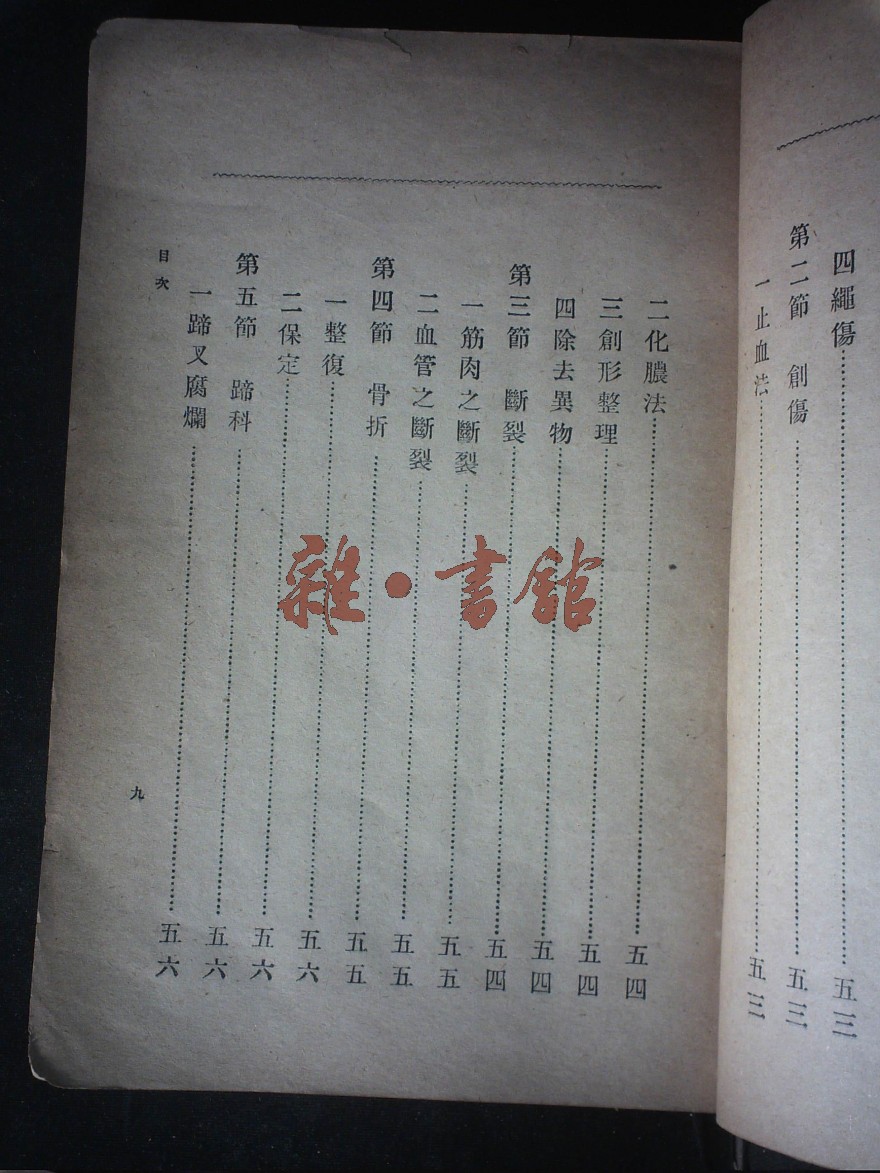 四繩傷……五三
第二節　創傷……五三
一止血法……五三
二化膿法……五四
三創形整理……五四
四除去異物……五四
第三節　斷裂……五四
一筋肉之斷裂……五五
二血管之斷裂……五五
第四節　骨折……五五
一整復……五六
二保定……五六
第五節　蹄科……五六
一蹄叉腐爛……五六
目次
九
雜·書館